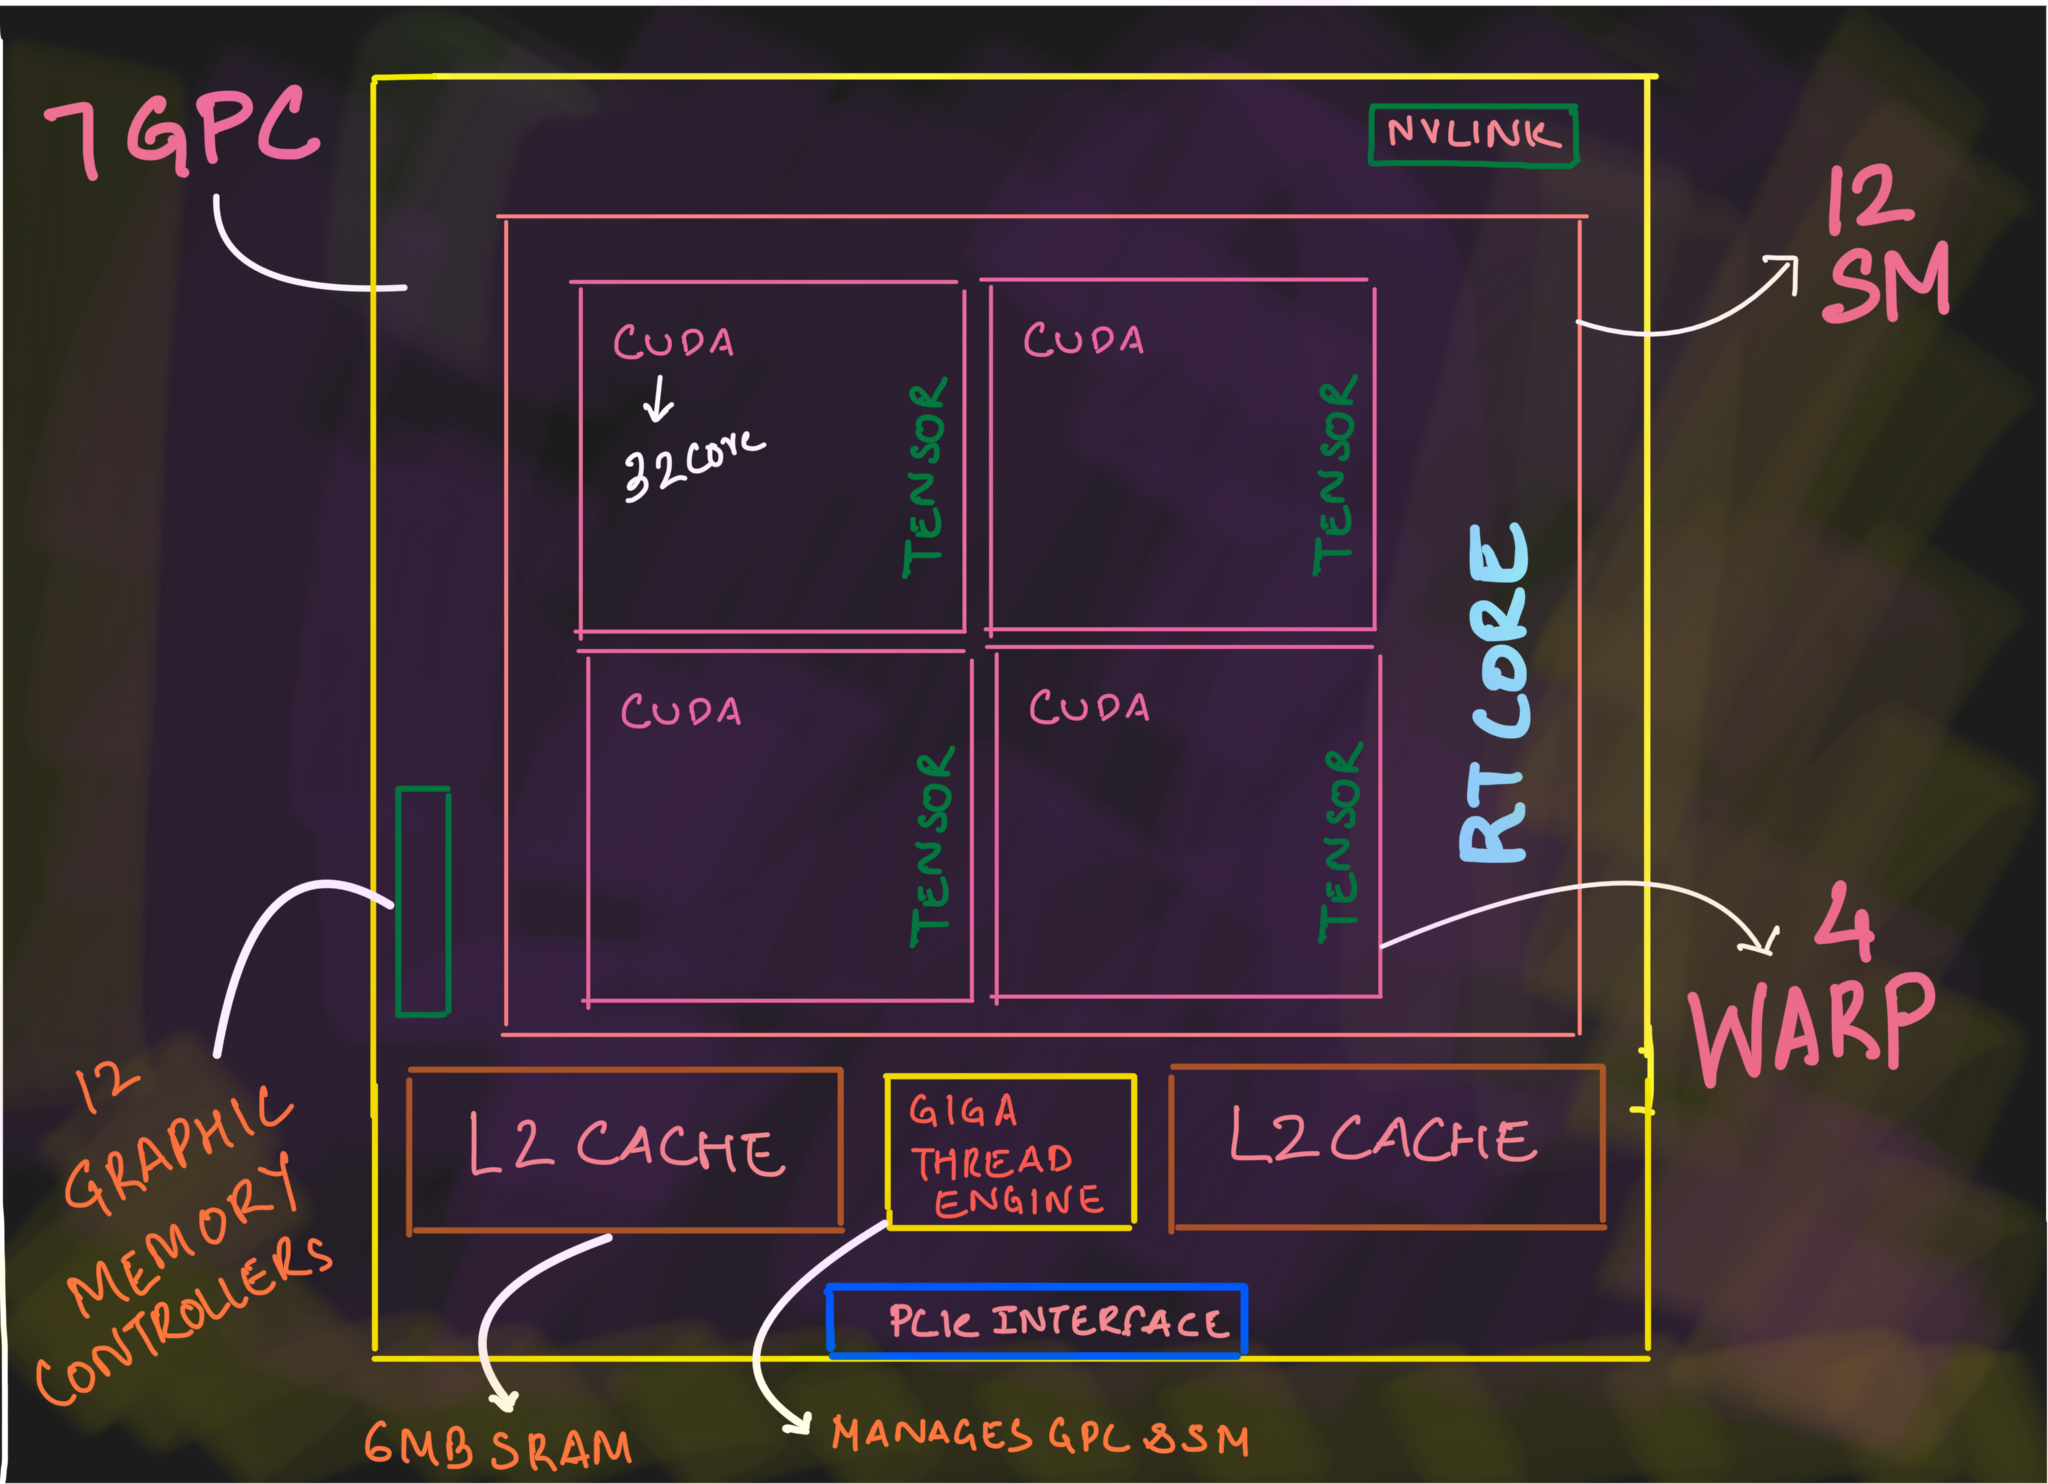 7 GPC
NVLINK
12
SM
CUDA
32 core
TENSOR
CUDA
TENSOR
CUDA
TENSOR
CUDA
TENSOR
RT CORE
4
WARP
12
GRAPHIC
MEMORY
CONTROLLERS
L2 CACHE
GIGA
THREAD
ENGINE
L2 CACHE
PCIe INTERFACE
6MB SRAM
MANAGES GPC & SM